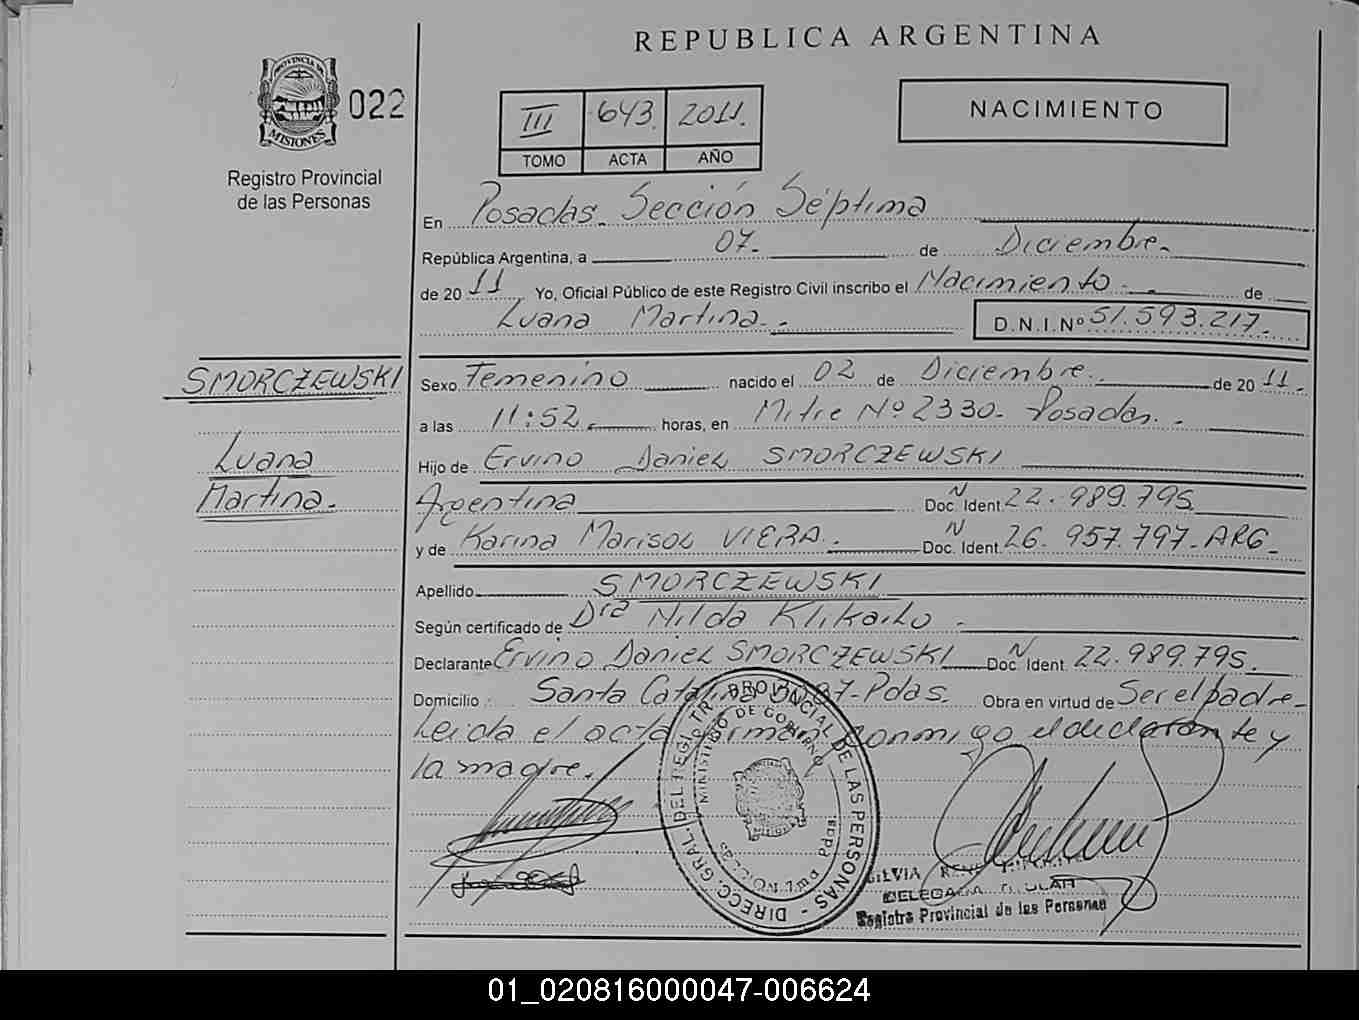 REPUBLICA ARGENTINA
PROVINCIA DE
MISIONES
022
Registro Provincial
de las Personas
III 643. 2011.
TOMO ACTA AÑO
NACIMIENTO
En Posadas. Sección Séptima
República Argentina, a 07. de Diciembre.
de 2011 Yo, Oficial Público de este Registro Civil inscribo el Nacimiento de
Luana Martina.
D.N.I.Nº 51.593.217.
SMORCZEWSKI
Luana
Martina.
Sexo Femenino nacido el 02 de Diciembre. de 2011.
a las 11:52. horas, en Mitre Nº 2330. Posadas.
Hijo de Ervino Daniel SMORCZEWSKI
Argentina Doc. Ident. N 22.989.795.
y de Karina Marisol VIERA. Doc. Ident. N 26.957.797. ARG.
Apellido SMORCZEWSKI
Según certificado de Dra Nilda
Declarante Ervino Daniel SMORCZEWSKI Doc. Ident. N 22.989.795.
Domicilio Santa Catalina Pdas. Obra en virtud de Ser el padre.
Leida el acta firman conmigo el declarante y
la madre.
DIRECC. GRAL. DEL REGISTRO PROVINCIAL DE LAS PERSONAS -
MINISTERIO DE GOBIERNO
Pdas.
SILVIA
DELEGADA TITULAR
Registro Provincial de las Personas
01_020816000047-006624